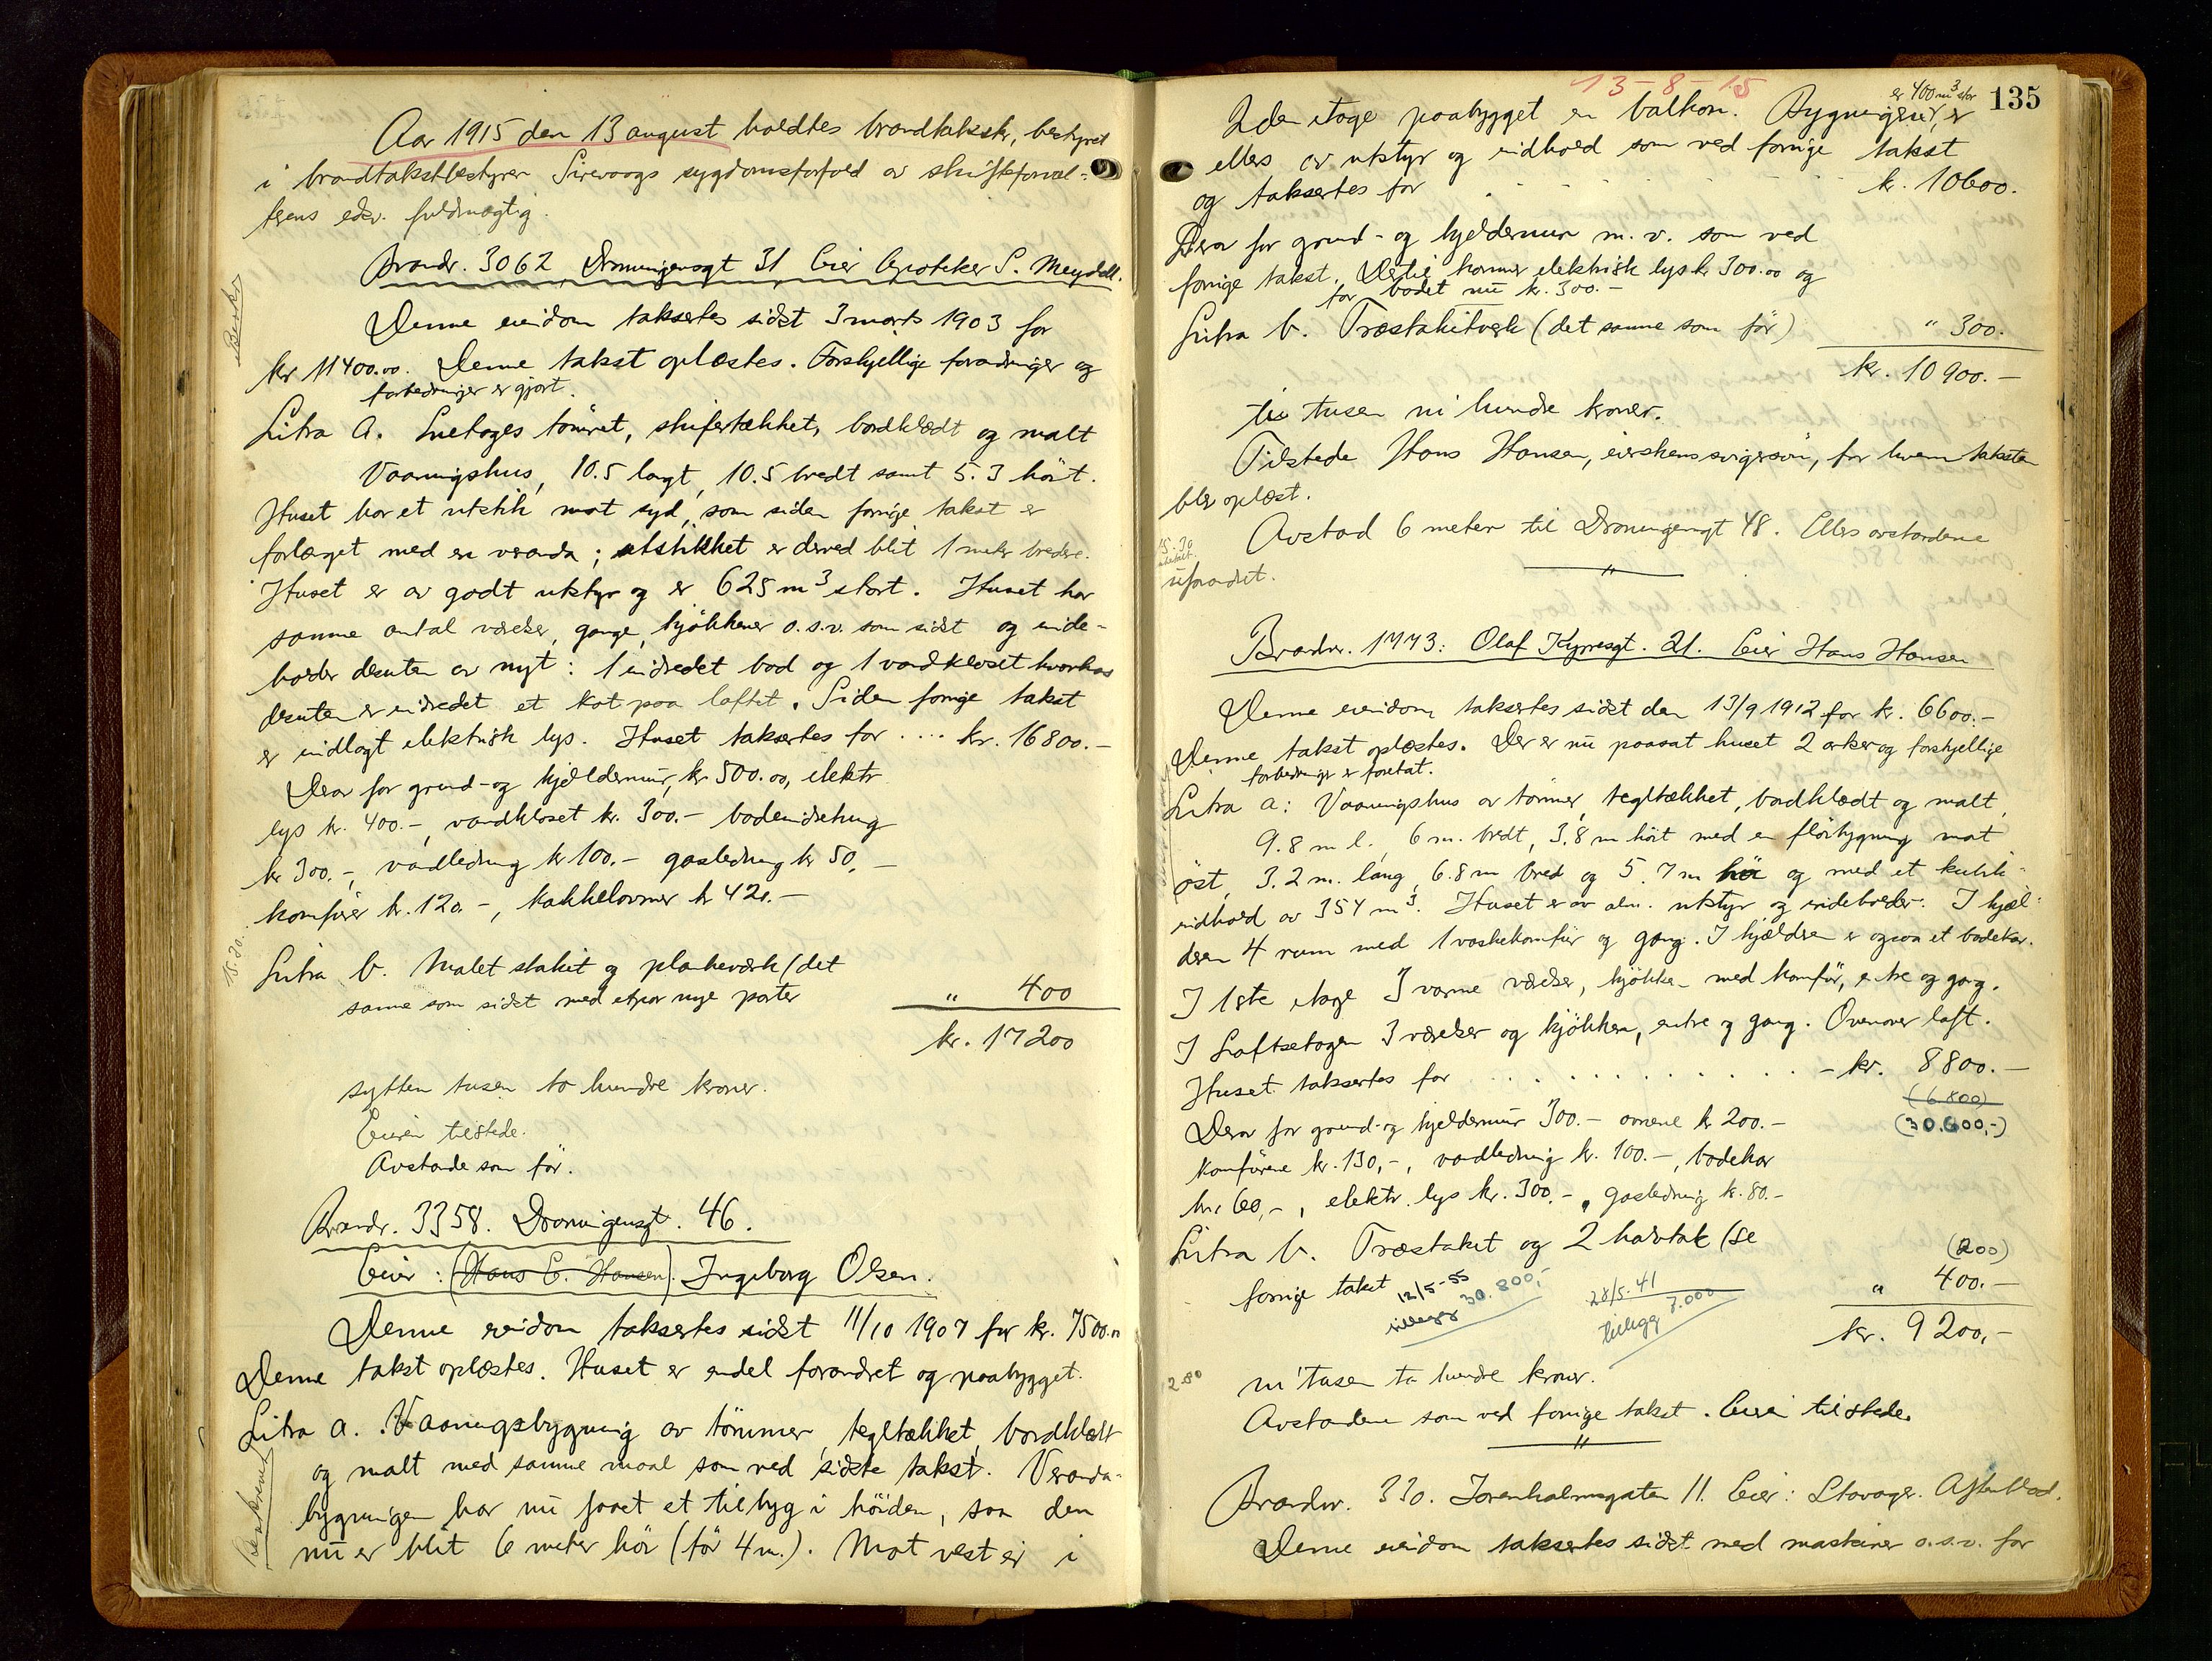 Aar 1915 den 13 august holdtes brandtakskr, bestyret
i brandtakstbestyrer Sirevaags sygdomsforfald av skifteforval-
terens edsv. fuldmægtig.
Brandnr. 3062 Dronningensgt 31 Eier Apoteker S. Meydell.
Denne eiendom taksertes sidst 3 marts 1903 for
kr 11400.00. Denne takst oplæstes. Forskjellige forandringer og
forbedringer er gjort.
Litra A. Enetages tömret, skifertækket, bordklædt og malt
Vaaningshus, 10.5 langt, 10.5 bredt samt 5.3 höit.
Huset har et utstik mot syd, som siden forrige takst er
forlænget med en veranda; utstikket er derved blit 1 meter bredere.
Huset er av godt utstyr og er 625 m³ stort. Huset har
samme antal værelser, gange, kjökkener o.s.v. som sidst og inde-
holder desuten av nyt: 1 indredet bod og 1 vandkloset hvorhos
desuten er indredet et kot paa loftet. Siden forrige takst
er indlagt elektrisk lys. Huset taksertes for .... kr. 16800.-
Derav for grund- og kjældermur, kr. 500.00, elektr
lys kr. 400.-, vandkloset kr. 300.- bodeindredning
kr 300.-, vandledning kr 100.- gasledning kr 50.-
komfürer kr. 120.-, kakkelovner kr 420.-
15.30.
Litra b. Malet stakit og plankeverk (det
samme som sidst med et par nye porter " 400
kr. 17200
sytten tusen to hundre kroner.
Eieren tilstede.
Avstande som för.
Brandnr. 3358. Dronningensgt. 46.
Eier: (Hans E. Hansen). Ingeborg Olsen.
Denne eiendom taksertes sidst 11/10 1907 for kr. 7500.00
Denne takst oplæstes. Huset er endel forandret og paabygget.
Litra a. Vaaningsbygning av tömmer, tegltækket, bordklædt
og malt med samme maal som ved sidste takst. Veranda-
bygningen har nu faaet et tilbyg i höiden, saa den
nu er blit 6 meter höi (för 4 m.). Mot vest er i
13-8-15
135
er 400 m³ stor
2den etage paabygget en balkon. Bygningen er
ellers av utstyr og indhold som ved forrige takst
og taksertes for . . . . . . kr. 10600.
Derav for grund- og kjeldermur m.v. som ved
forrige takst. Dertil kommer elektrisk lys kr 300.00 og
for badet nu kr. 300.-
Litra b. Træstakitverk (det samme som för) " 300.
kr. 10900.-
ti tusen ni hundre kroner.
Tilstede Hans Hansen, eierskens svigersön, for hvem taksten
blev oplæst.
Avstand 6 meter til Dronningensgt 48. Ellers avstandene
15.30
uforandret.
"
Brandnr. 1773: Olaf Kyrresgt. 21. Eier Hans Hansen
Denne eiendom taksertes sidst den 13/9 1912 for kr. 6600.-
Denne takst oplæstes. Der er nu paasat huset 2 arker og forskjellige
forbedringer er foretat.
Litra a: Vaaningshus av tömmer, tegltækket, bordklædt og malt,
9.8 m l., 6 m. bredt, 3.8 m höit med en flöibygning mot
öst, 3.2 m. lang, 6.8 m bred og 5.7 m höi og med et kubik-
indhold av 354 m³. Huset er av alm. utstyr og indeholder: I kjæl-
deren 4 rum med 1 vaskekomfür og gang. I kjælderen er ogsaa et badekar.
I 1ste etage 3 varme værelser, kjökken med komfür, entre og gang.
I Loftsetagen 3 værelser og kjökken, entre og gang. Ovenover loft.
Huset taksertes for . . . . . . . . . . . - kr. 8800.-
(6800)
(30.600,-)
Derav for grund- og kjeldermur 300.- ovnene kr 200.-
Komfürene kr. 130,-, vandledning kr. 100.-, badekar
kr. 60,-, elektr. lys kr. 300.-, gasledning kr. 80.-
Litra b. Træstakit og 2 halvtak (se (200)
forrige takst " 400.-
12/5-55
tillegg 30.800,-
28/5-41
tillegg 7.000
kr. 9200,-
12.80
ni tusen to hundre kroner.
Avstandene som ved forrige takst. Eieren tilstede.
"
Brandnr. 330. Jorenholmsgaten 11. Eier: Stavanger Aftenblad.
Denne eiendom taksertes sidst med maskiner o.s.v. for